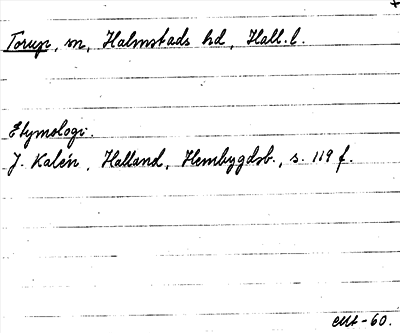 Torup, sn, Halmstads hd, Hall. l.
Etymologi.
J. Kalén, Halland, Hembygdsb., s. 119 f.
-60.